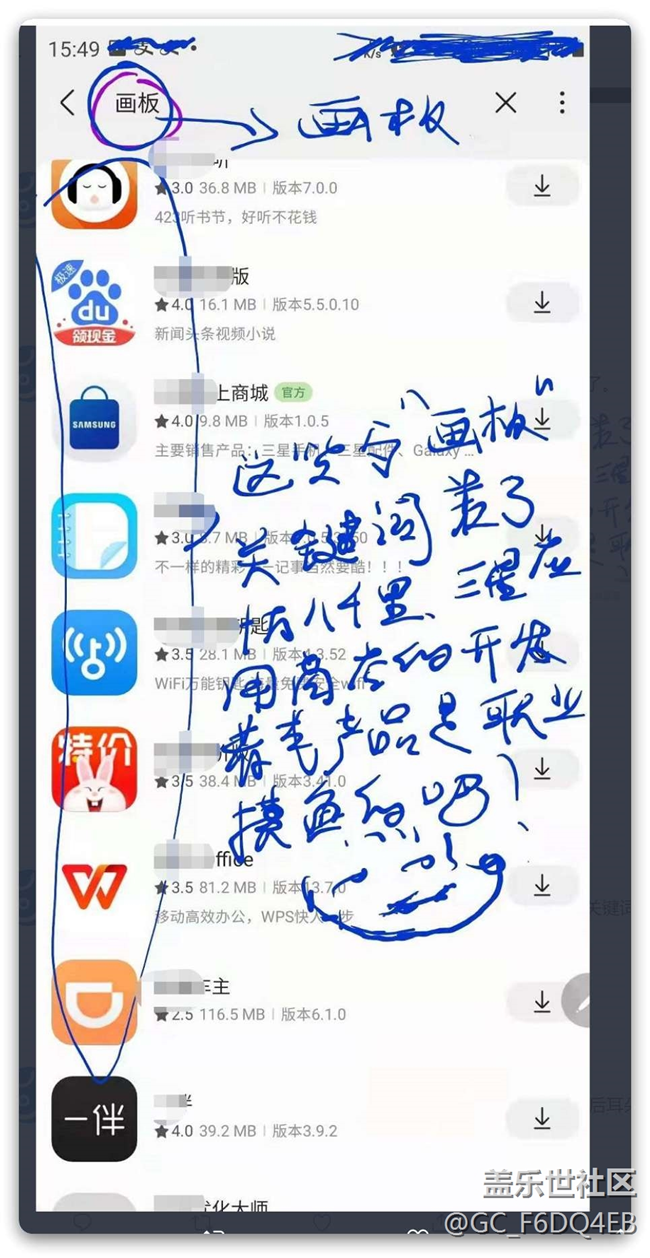 15:49
K/s
画板
画板
3.0 36.8 MB | 版本7.0.0
423听书节，好听不花钱
极速
du
领现金
版
4.0 16.1 MB | 版本5.5.0.10
新闻头条视频小说
SAMSUNG
上商城 官方
4.0 9.8 MB | 版本1.0.5
主要销售产品：三星手机、三星配件、Galaxy ...
3.0
.7 MB | 版本
不一样的精彩，记事当然要酷！！！
钥匙
3.5 28.1 MB | 版本4.3.52
WiFi万能钥匙
特价
3.5 38.4 MB | 版本3.41.0
ffice
3.5 81.2 MB | 版本13.7.0
移动高效办公，WPS快人一步
车主
2.5 116.5 MB | 版本6.1.0
一伴
伴
4.0 39.2 MB | 版本3.9.2
优化大师
这些与"画板"
关键词差了
十万八千里、三星应
用商店的开发
者产品是职业
摸鱼的吧！
盖乐世社区
@GC_F6DQ4EB